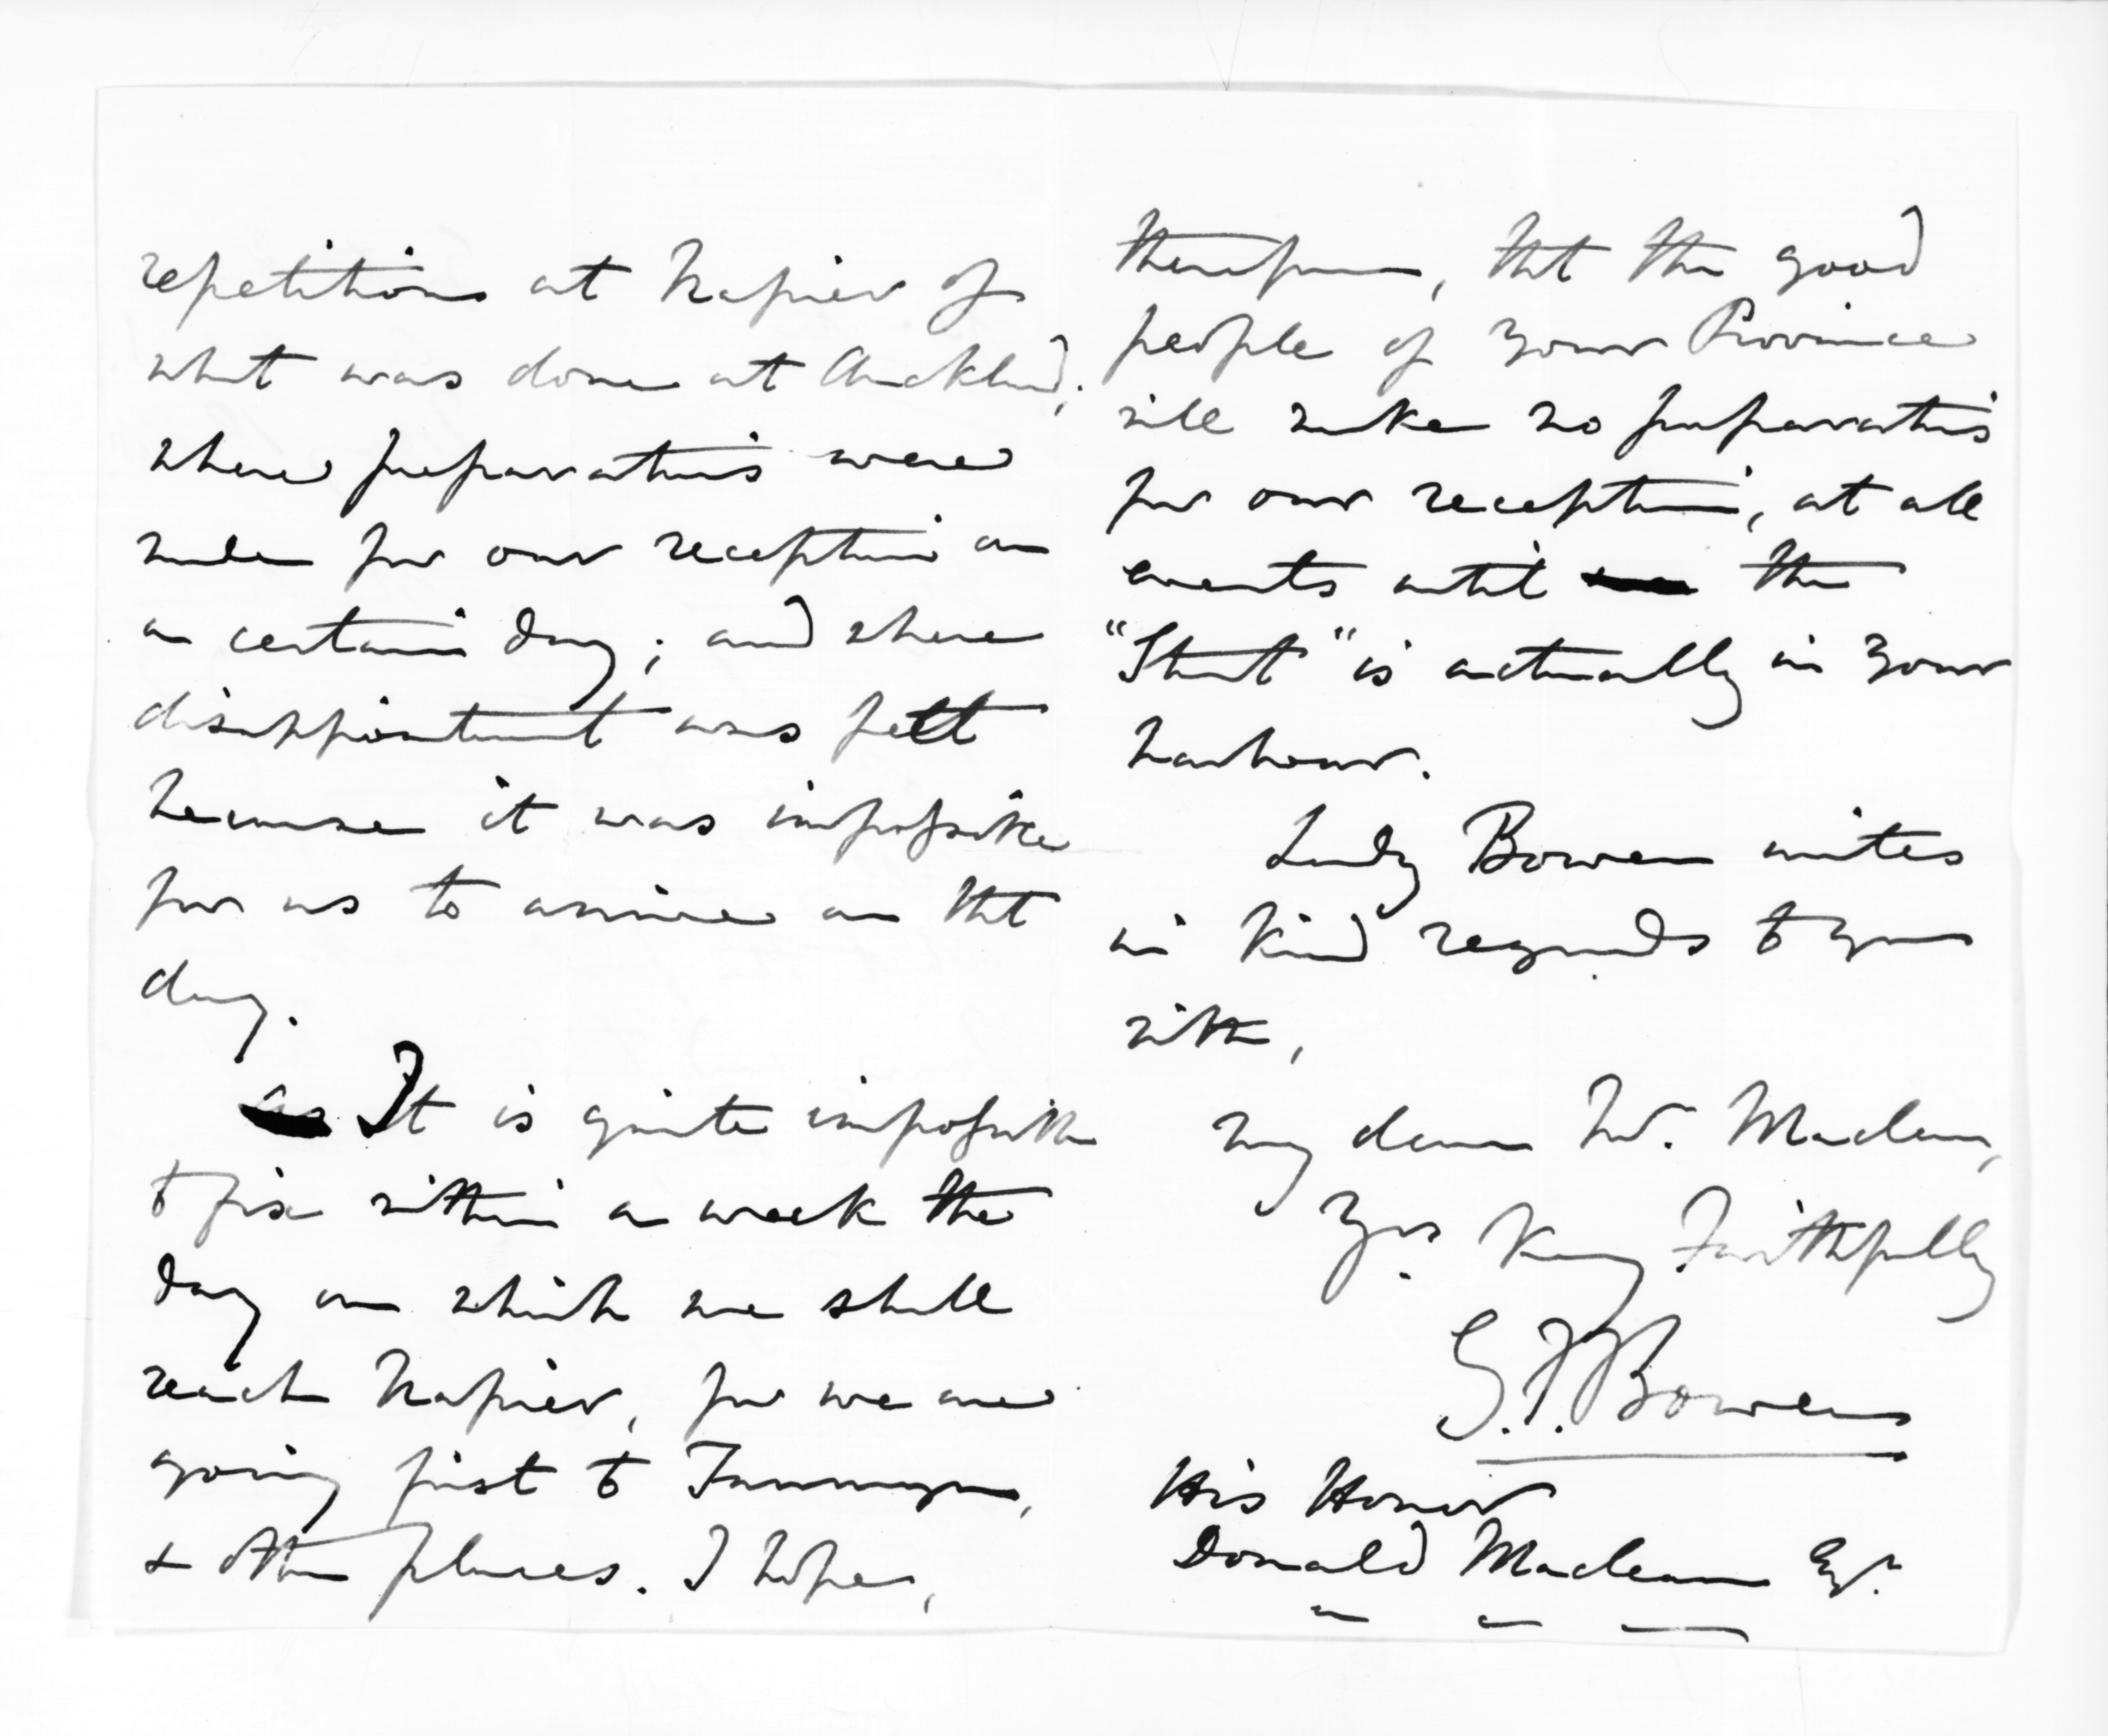 repetition at Napier of
what was done at Auckland,
where preparations were
made for our reception on
a certain day; and where
disappointment was felt
because it was impossible
for us to arrive on that
day.
as It is quite impossible
to fix within a week the
day on which we shall
reach Napier, for we are
going first to Tauranga,
& other places. I hope,
therefore, that the good
people of your Province
will make no preparations
for our reception, at all
events until the
"Sturt" is actually in your
harbour.
Lady Bowen unites
in kind regards to you
with,
My dear Mr. Maclean,
Yrs. Very Faithfully
G.F. Bowen
His Honor
Donald Maclean Esqr.